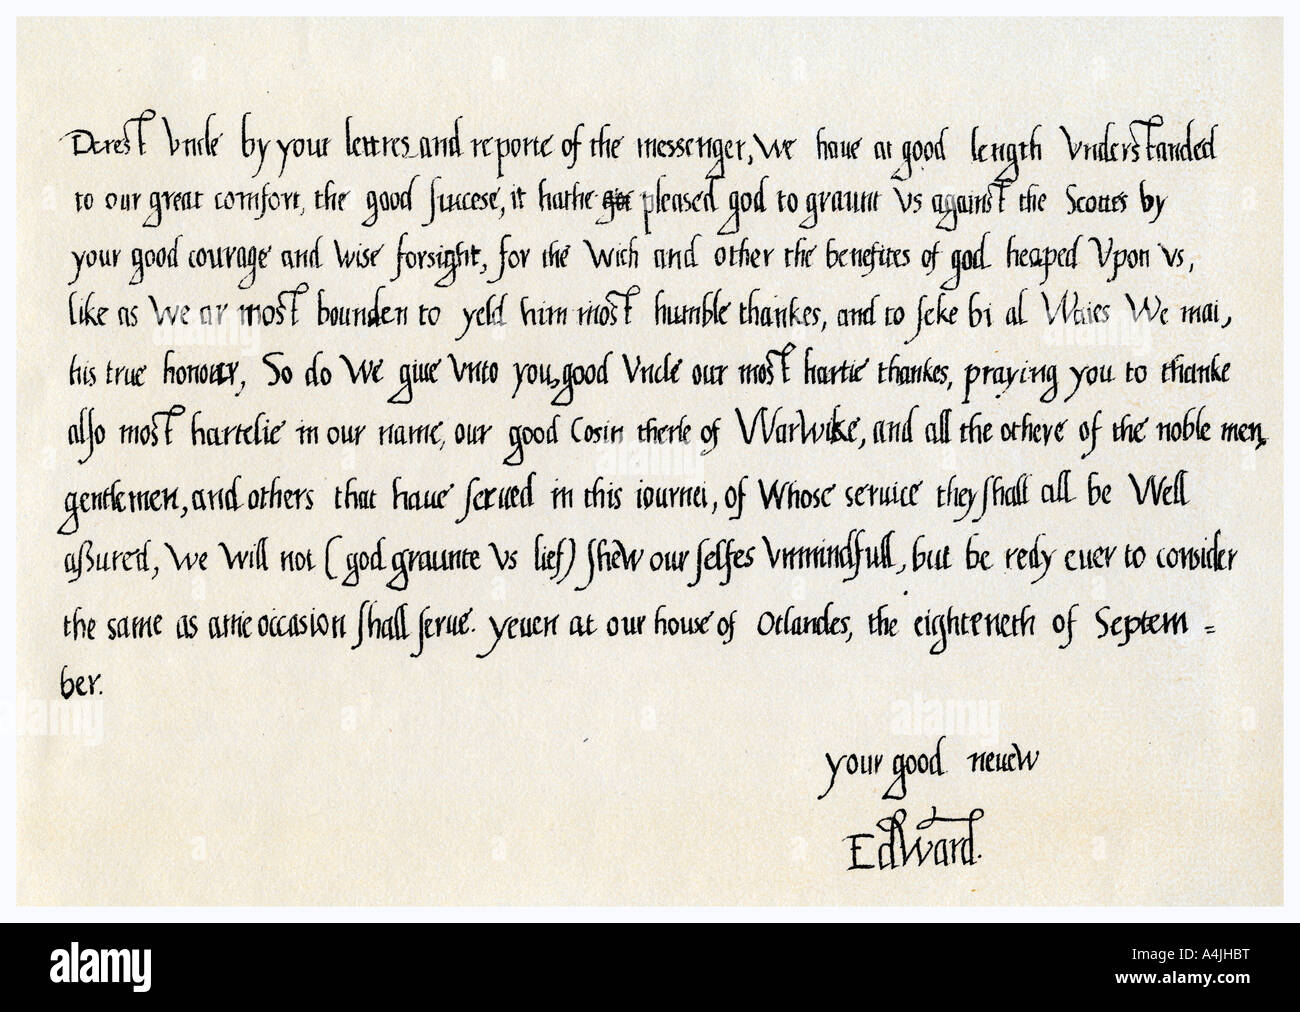 Derest Vncle by your lettres and reporte of the messenger, we haue at good length Vnderstanded
to our great comfort, the good succese, it hathe pleased god to graunt Vs against the Scottes by
your good courage and wise forsight, for the wich and other the benefites of god heaped Vpon vs,
like as we ar most bounden to yeld him most humble thankes, and to seke bi al Waies We mai,
his true honour, So do We giue Vnto you, good Vncle our most hartie thankes, praying you to thanke
also most hartelie in our name, our good Cosin therle of Warwike, and all the othere of the noble men,
gentlemen, and others that haue serued in this iournei, of Whose seruice they shall all be Well
assured, We Will not (god graunte Vs lief) shew our selfes Vnmindfull, but be redy euer to consider
the same as anie occasion shall serue. yeuen at our house of Otlandes, the eighteneth of Septem=
ber.
your good neuew
Edward.
alamy
A4JHBT
www.alamy.com